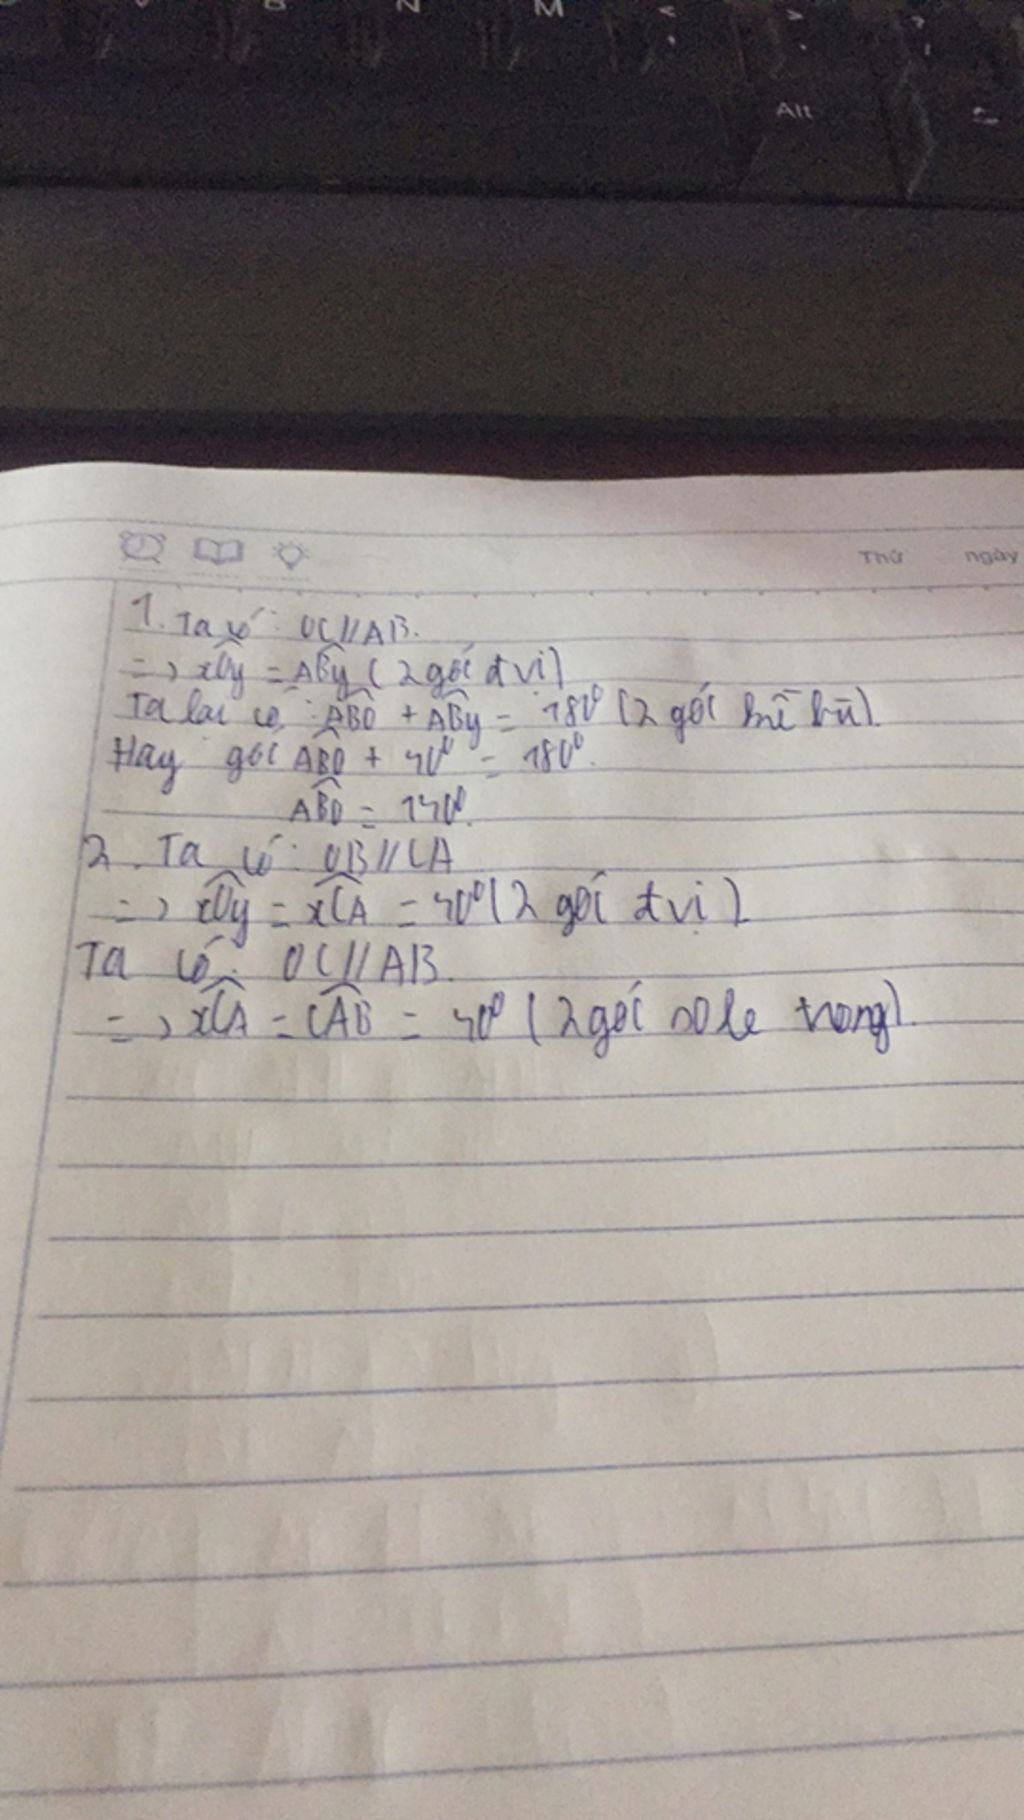 B N M
Alt
Thứ ngày
1. Ta có: OC//AB.
=> xOy = ABy (2 góc đ vị)
Ta lại có: ABO + ABy = 180⁰ (2 góc kề bù).
Hay góc ABO + 40⁰ = 180⁰.
ABO = 140⁰.
2. Ta có: OB//CA
=> xOy = xCA = 40⁰ (2 góc đ vị)
Ta có: OC//AB.
=> xCA = CAB = 40⁰ (2 góc so le trong).